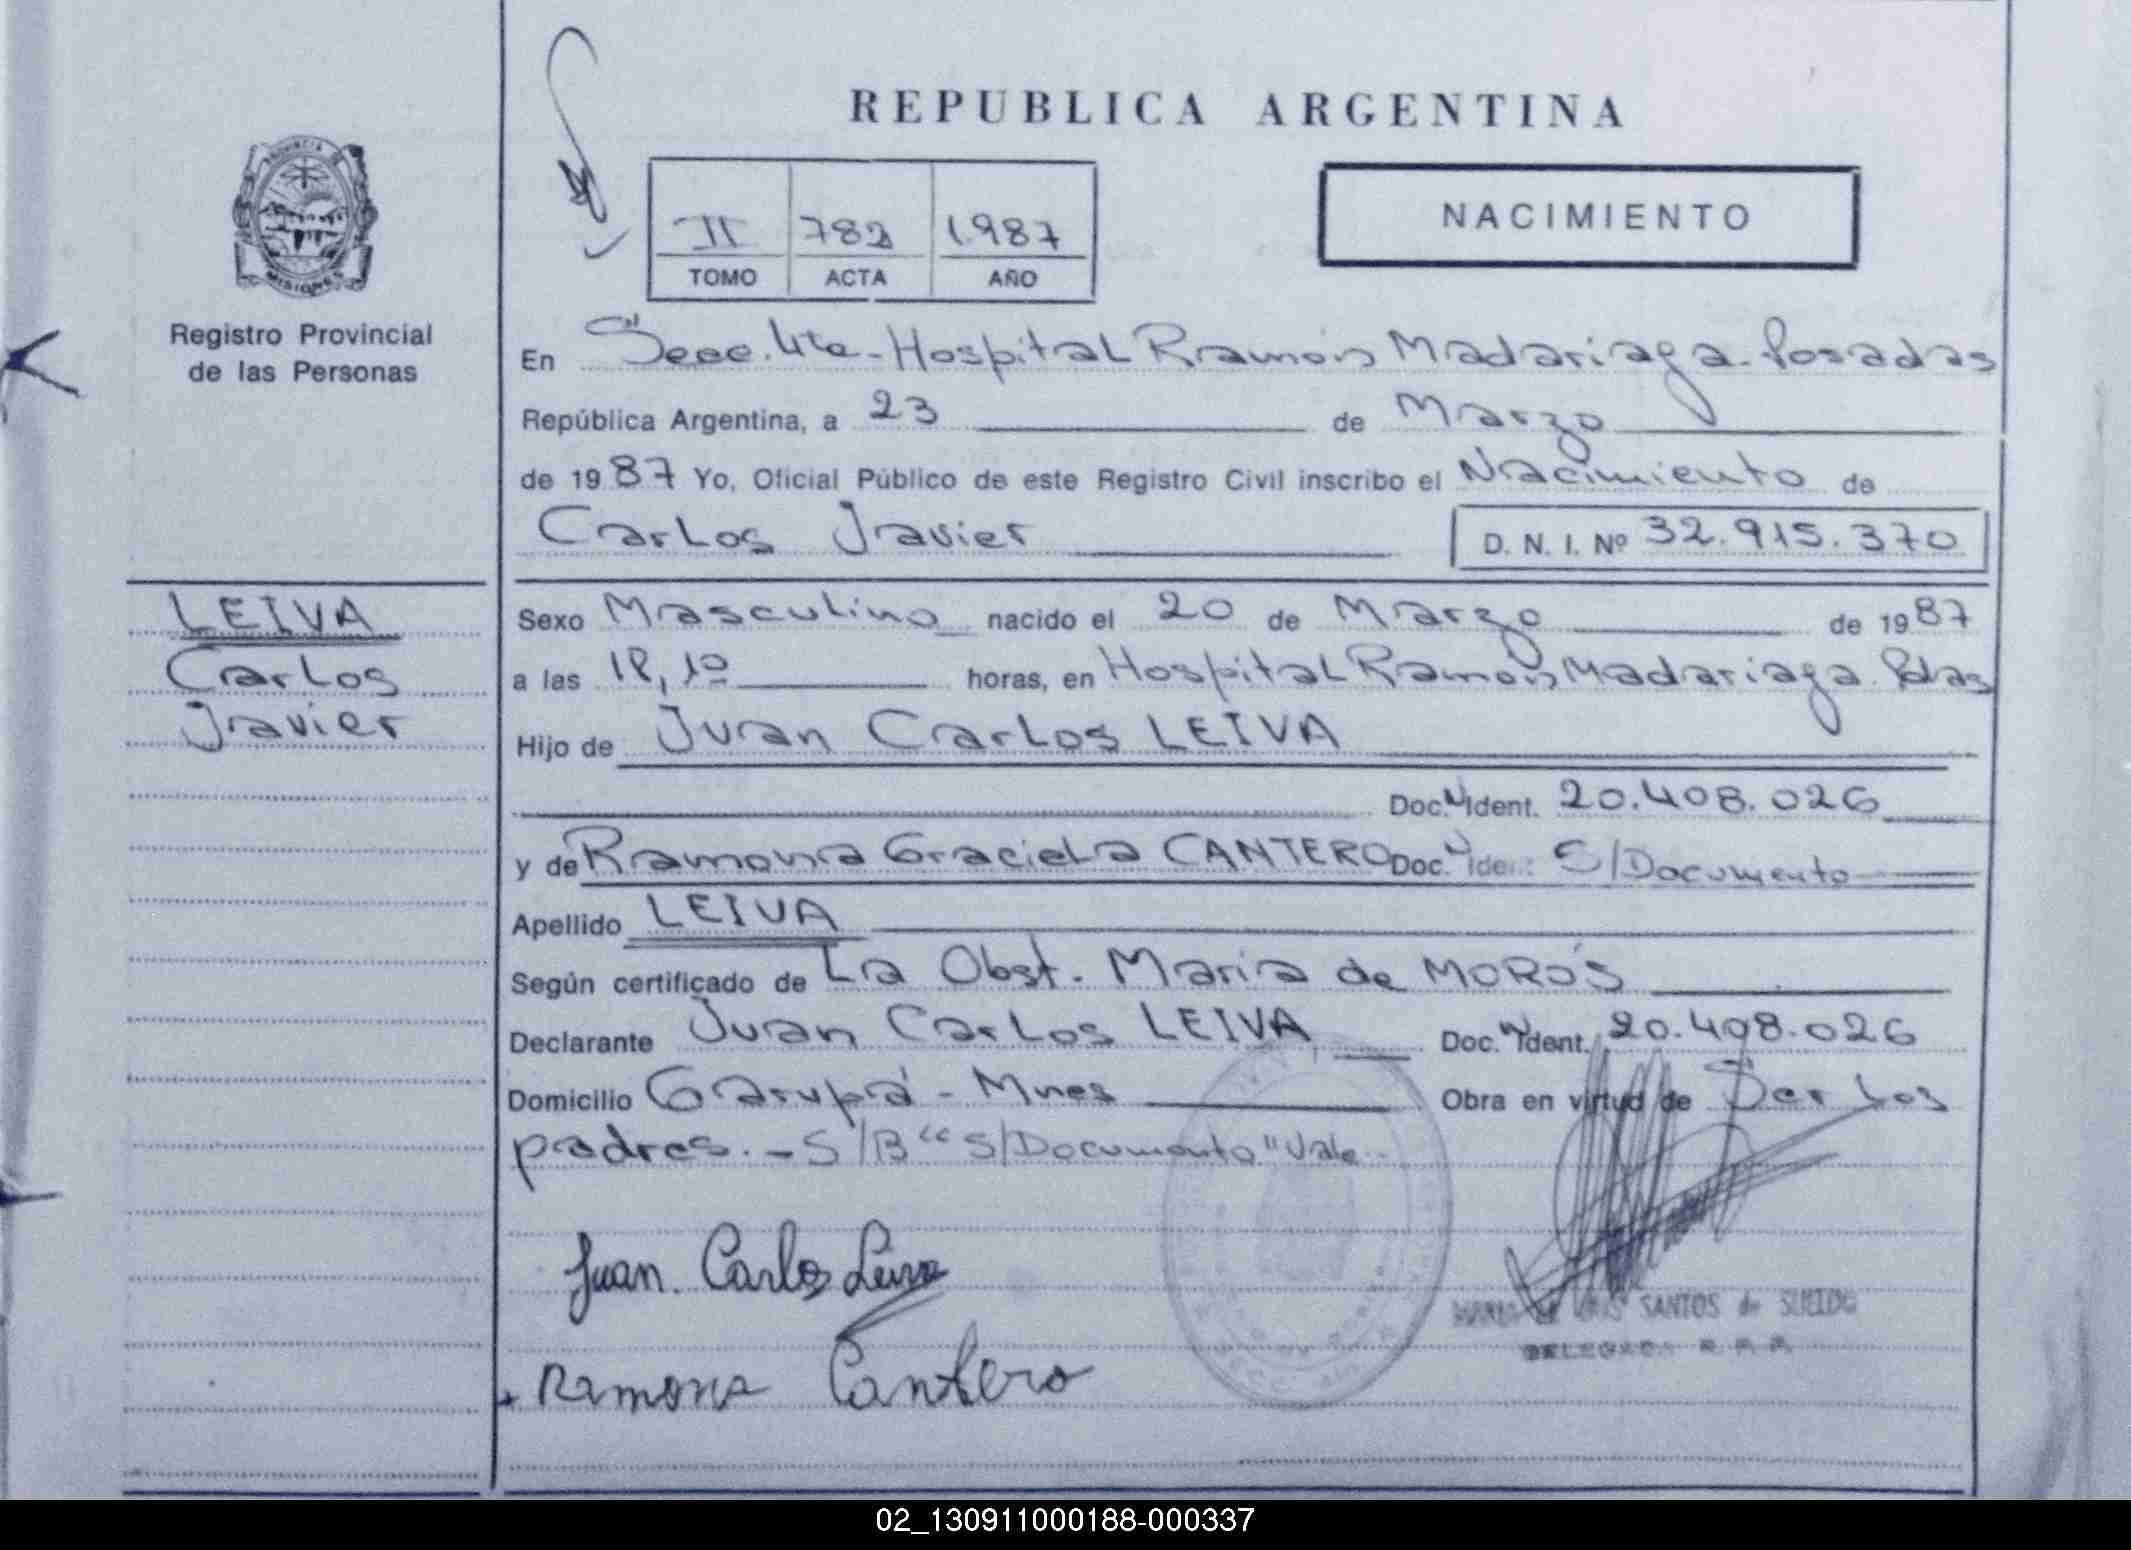 REPUBLICA ARGENTINA
PROVINCIA DE
MISIONES
Registro Provincial
de las Personas
II 782 1987
TOMO ACTA AÑO
NACIMIENTO
En Secc. 4ta - Hospital Ramón Madariaga - Posadas
República Argentina, a 23 de Marzo
de 1987 Yo, Oficial Público de este Registro Civil inscribo el Nacimiento de
Carlos Javier D. N. I. Nº 32.915.370
LEIVA
Carlos
Javier
Sexo Masculino nacido el 20 de Marzo de 1987
a las 18,10 horas, en Hospital Ramón Madariaga Pdas
Hijo de Juan Carlos LEIVA
Doc. N Ident. 20.408.026
y de Ramona Graciela CANTERO Doc. N Iden: S/Documento
Apellido LEIVA
Según certificado de La Obst. María de MOROS
Declarante Juan Carlos LEIVA Doc. N Ident. 20.408.026
Domicilio Garupá - Mnes Obra en virtud de Ser los
padres. - S/B "S/Documento" Vale
Juan Carlos Leiva
SANTOS de SUEIDO
DELEGADA R.P.P.
Ramona Cantero
02_130911000188-000337